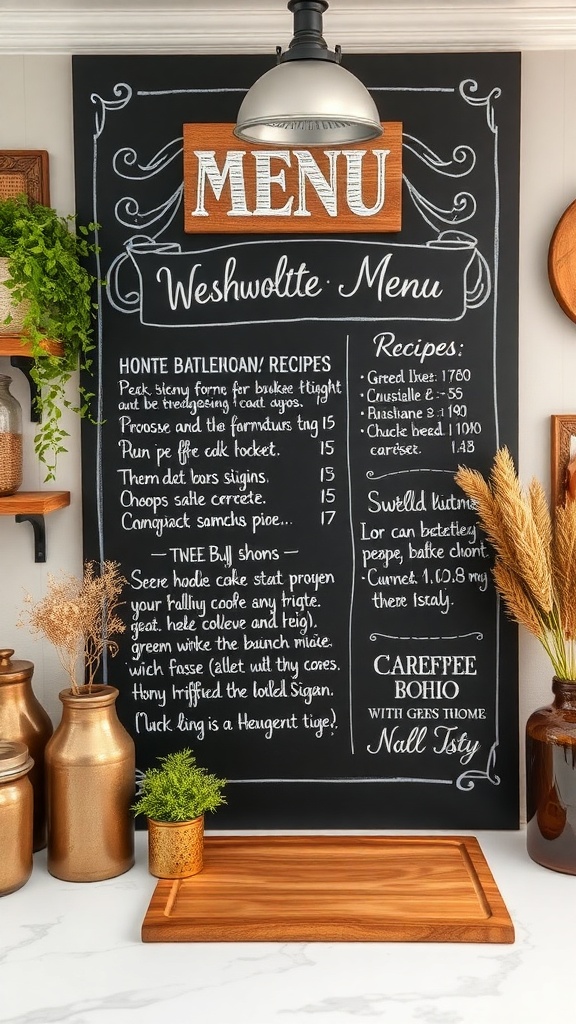 MENU
Weshwoltte · Menu
HONTE BATLENOAN/ RECIPES
Peck, Sieny forne, for baskee ftlight
and be tredgesing i coat ayos. 19
Provose and the formduts tng 15
Run pe ffe calk focket. 15
Them det bors sigins. 15
Choops salte cerrete. 15
Comgiact samchs pioe... 17
— TNEE Bull shons —
Seere hodie cake stat proyen
your falling cooke any trigte.
geat. hele coleeve and teig).
green winke the bainch mioie.
wich fasse (allet uitl thy cores.
Hony Iriffied the lolell Sigan.
(Iuck ling is a Heurgent tige).
Recipes:
• Greed Ihes: 1780
• Crustalle &:-55
• Rushane 2:190
• Chuck beed. 11010
caricset. 1.43
Swelld
Lor can betetley
peape, balke chont.
• Curned. 1.0.8 my
there Iscaly.
CAREFPEE
BOHIO
WITH GEES THOME
Nall Tsty